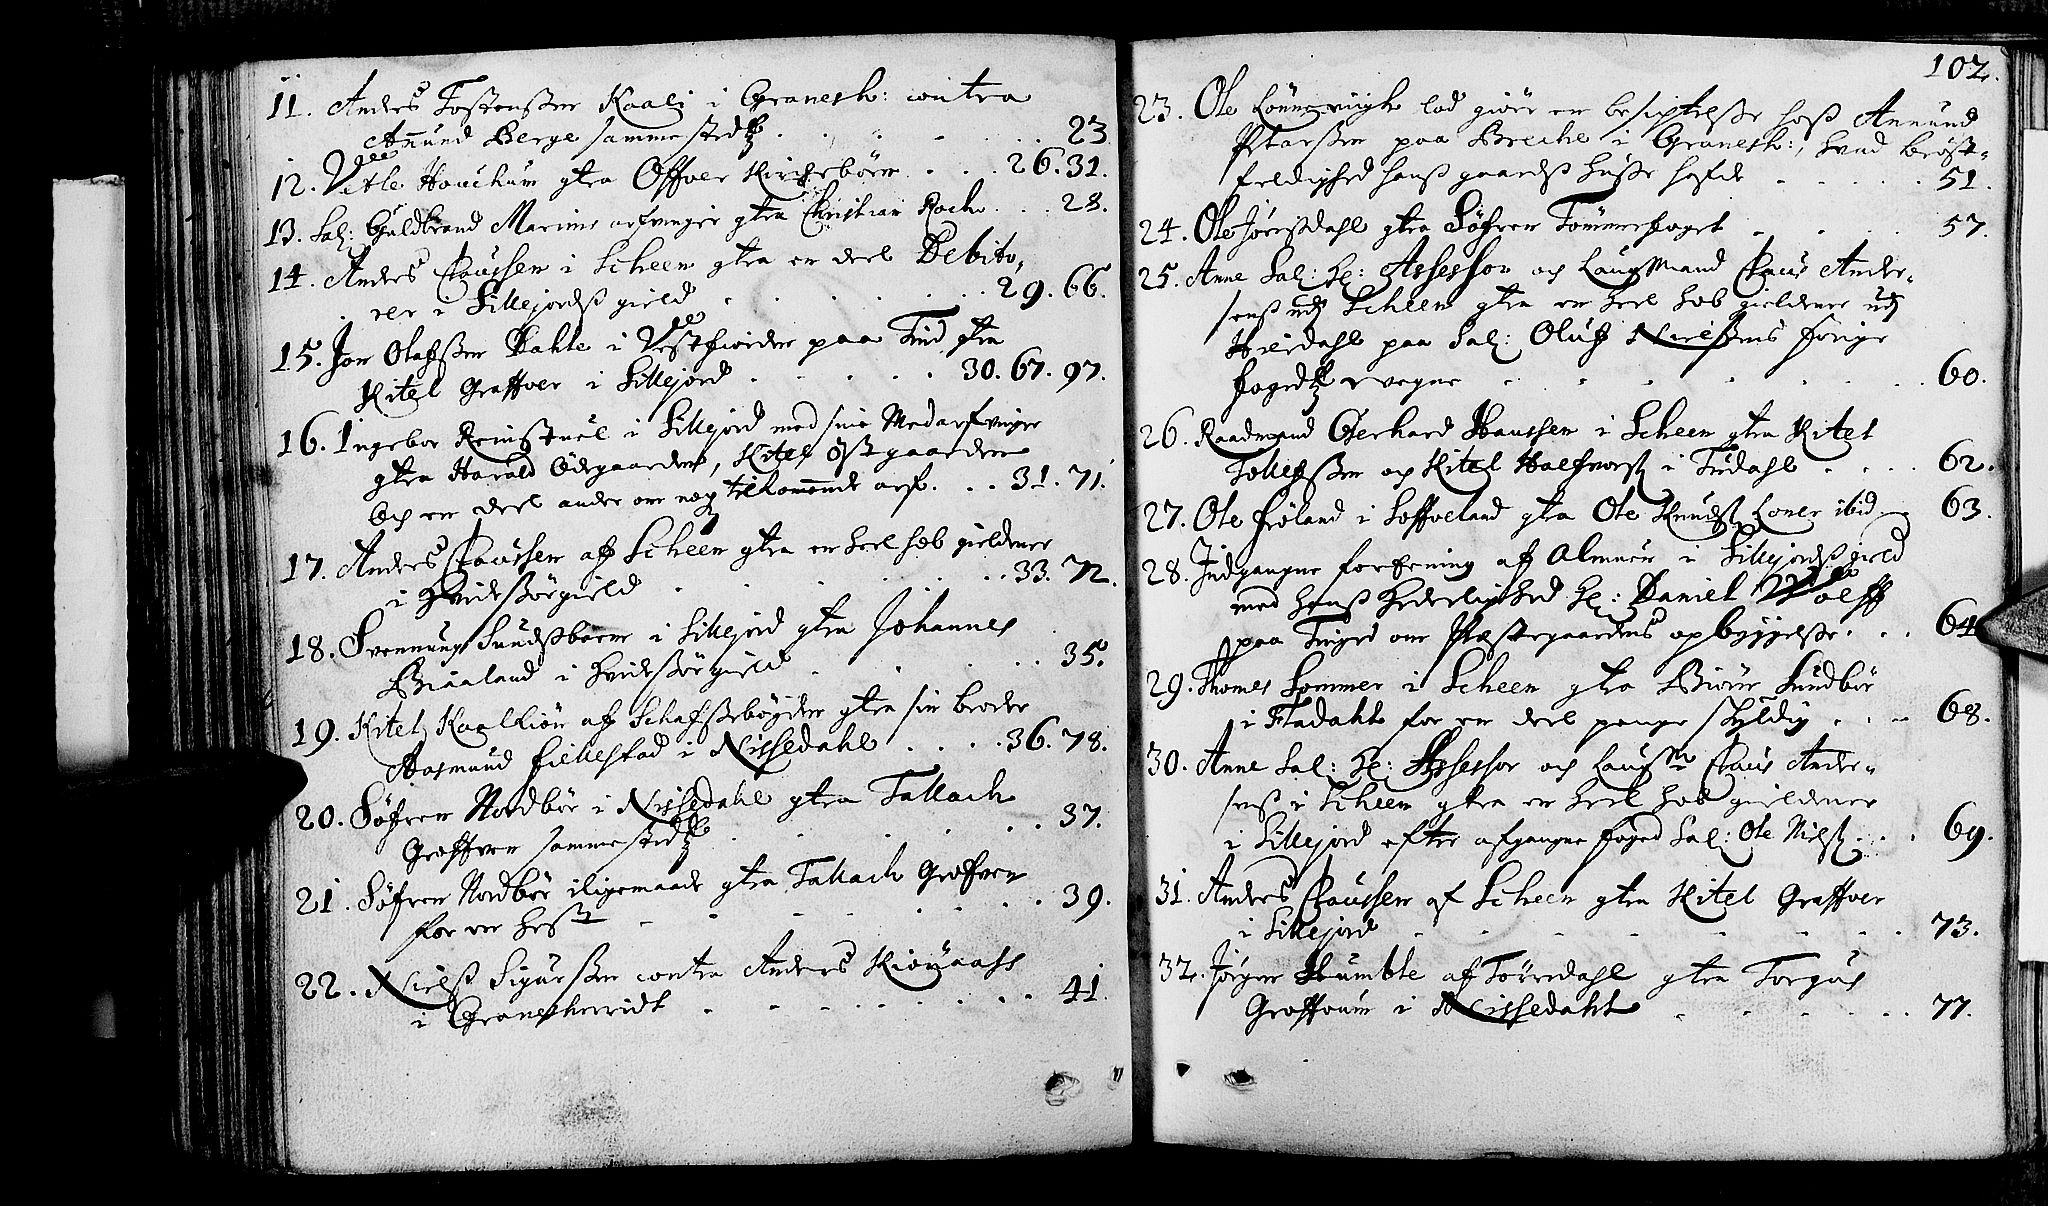 11. Anders Tostensßen Kaali i Granesh: contra
Anund Berge sammestedtz . . . . . 23
12. Vetle Houchum gtra Offver Kirchebøen . . . 26. 31.
13. Sal: Guldbrand Marine arfvinger gtra Christian Roche . . . 28.
14. Anders Claussen i Scheen gtra en deel Debito,
rer i Sillejordß gield . . . . . . 29. 66.
15. Jon Olafsßen Dahle i Vestfiorden paa Tind gtra
Kitel Graffver i Sillejord . . . . . . 30. 67. 97.
16. Ingebor Reinstuel i Sillejord med sine Medarfvinger
gtra Harald Ødegaarden, Kitel Østgaarden
och en deel andre om nog tilkommende arf . . . 31. 71.
17. Anders Claussen aff Scheen gtra en heel hob gieldener
i Hvidesøegield . . . . . . . 33. 72.
18. Svennung Sundsbøen i Sillejord gtra Johannes
Biaaland i Hvidesøegield . . . . . . 35.
19. Kitel Kaalkiøn aff Schafsßebøygden gtra sin broder
Aasmund Fiellestad i Nissedahl . . . . . 36. 78.
20. Søfren Nordbøe i Nissedahl gtra Tallach
Graffven sammestedtz . . . . . . . 37.
21. Søfren Nordbøe iligemaade gtra Tallach Graffven
for en hest . . . . . . . 39.
22. Nielß Sigursßen contra Anders Kiønaass
i Granesherridt . . . . . . . . 41.
102.
23. Ole lod giøre en besigtelse hoß Annund
paa Breche i Granesh:, hvad brøst-
feldighed hanß gaardß huße hafde . . . . 51.
24. Ole Jøreßdahl gtra Søfren Tømmerfoget . . . . 57.
25. Anne Sal: Hr: Assessor och Laugmand Claus Ander-
senß udj Scheen gtra en heel hob gieldener udj
Hierdahl paa Sal: Oluff Nielsens forige
fogedtz vegne . . . . . . . . 60.
26. Raadmand Gerhard Haussen i Scheen gtra Kitel
Tollefsßen och Kitel Halfvorß i Tudahl . . . . 62.
27. Ole Frøland i Loffveland gtra Ole Knudß Loner ibid — 63.
28. Indgangne forening aff Almuen i Sillejordß gield
med hanß hederlighed Hr: Daniel Wolff
paa Tinget om Præstegaardens opbyggelße . . . 64
29. Thomes Sommer i Scheen gtra Biørn Sundbøe
i Fladahl for en deel penge skyldig . . . 68.
30. Anne Sal: Hr: Assessor och Laugm Claus Ander-
senß i Scheen gtra en heel hob gieldener
i Sillejord efter afgangne foged Sal: Ole Nielß . . . 69.
31. Anders Claussen af Scheen gtra Kitel Graffver
i Sillejord . . . . . . . . 73.
32. Jørgen Humble af Tørredahl gtra Torgus
Graffvum i Nissedahl . . . . . . 77.